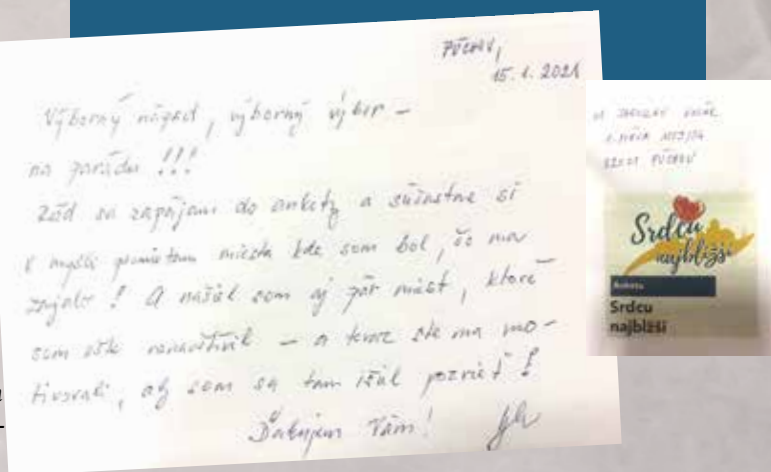 Púchov,
15. 1. 2021
Výborný nápad, výborný výber –
na parádu !!!
Rád sa zapájam do ankety a súčastne si
v mysli premietam miesta kde som bol, čo ma
zaujalo! A našiel som aj pár miest, ktoré
som ešte nenavštívil – a teraz ste ma mo-
tivovali, aby som sa tam išiel pozrieť!
Ďakujem Vám!
PÚCHOV
Srdcu
najbližší
Anketa
Srdcu
najbližší